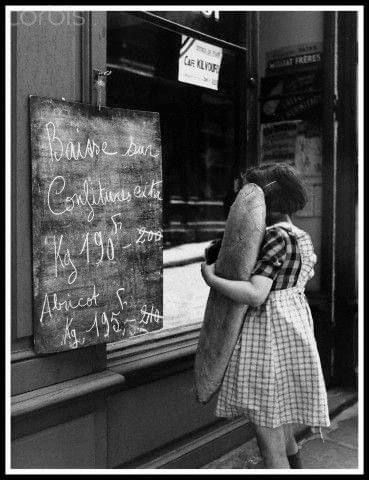 Corbis
CAFÉ KILVOUFO
FRÈRES
Baisse sur
Confitures cité
Kg 190 F - 200
Abricot
Kg. 195 F - 210